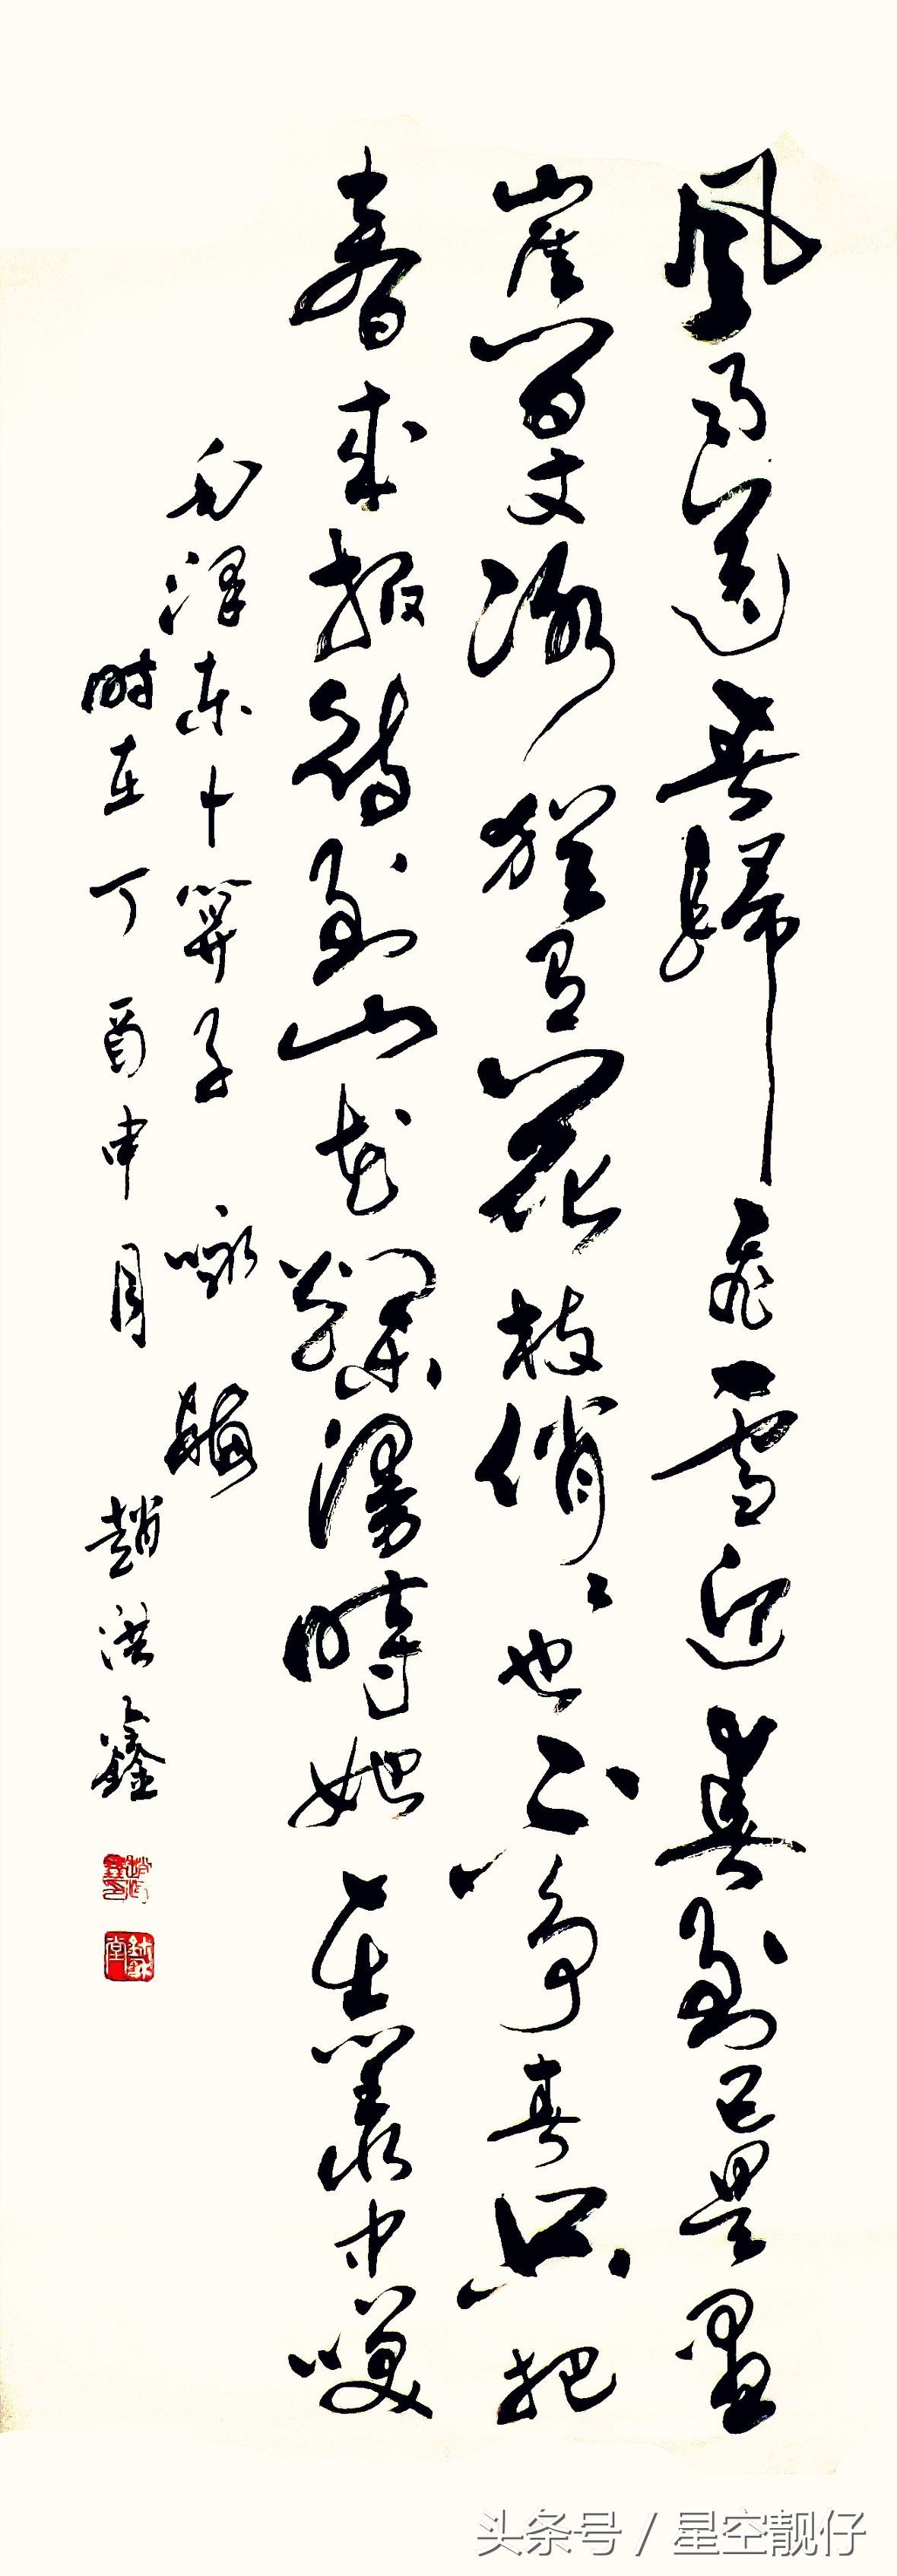 風雨送春歸飛雪迎春到已是懸
崖百丈冰猶有花枝俏々也不争春只把
春来報待到山花爛漫時她在叢中笑
毛澤東卜算子 咏梅
时在丁酉申月 趙洪鑫
头条号 / 星空靓仔